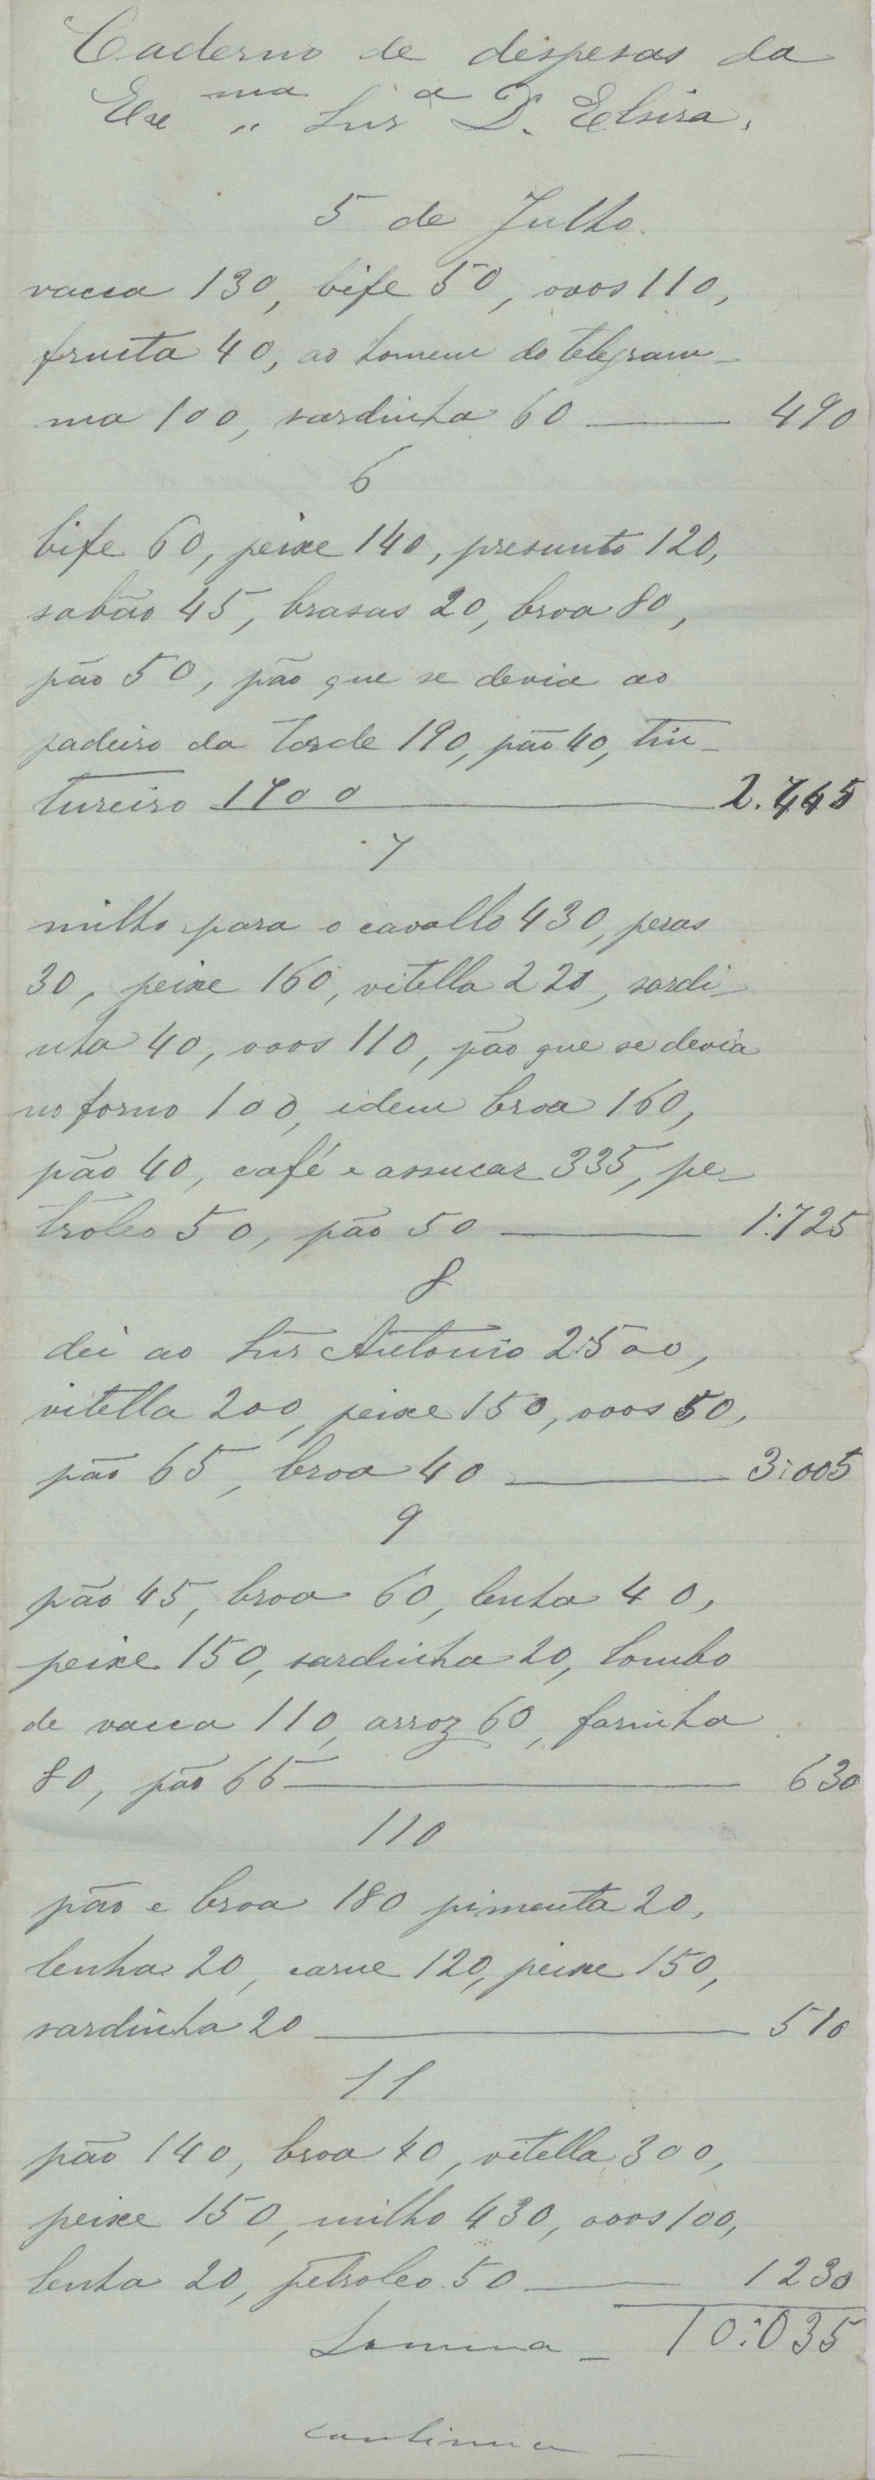 Caderno de despesas da
Exma Snra D. Elvira.
5 de Julho.
vacca 130, bife 50, ovos 110,
fructa 40, ao homem do telegram-
ma 100, sardinha 60 — 490
6
bife 60, peixe 140, presunto 120,
sabão 45, brasas 20, broa 80,
pão 50, pão que se devia ao
padeiro da tarde 190, pão 40, tin-
tureiro 1700 — 2.445
7
milho para o cavallo 430, peras
30, peixe 160, vitella 220, sardi-
nha 40, ovos 110, pão que se devia
no forno 100, idem broa 160,
pão 40, café e assucar 335, pe-
troleo 50, pão 50 — 1:725
8
dei ao Snr Antonio 2:500,
vitella 200, peixe 150, ovos 50,
pão 65, broa 40 — 3:005
9
pão 45, broa 60, lenha 40,
peixe 150, sardinha 20, lombo
de vacca 110, arroz 60, farinha
80, pão 65 — 630
110
pão e broa 180 pimenta 20,
lenha 20, carne 120, peixe 150,
sardinha 20 — 510
11
pão 140, broa 40, vitella 300,
peixe 150, milho 430, ovos 100,
lenha 20, petroleo 50 — 1230
Somma — 10:035
continua —